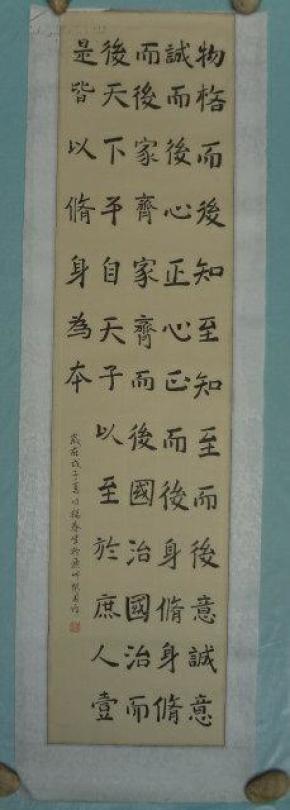 物格而後知至知至而後意誠意
誠而後心正心正而後身脩身脩
而後家齊家齊而後國治國治而
後天下平自天子以至於庶人壹
是皆以脩身為本
歲在戊子夏